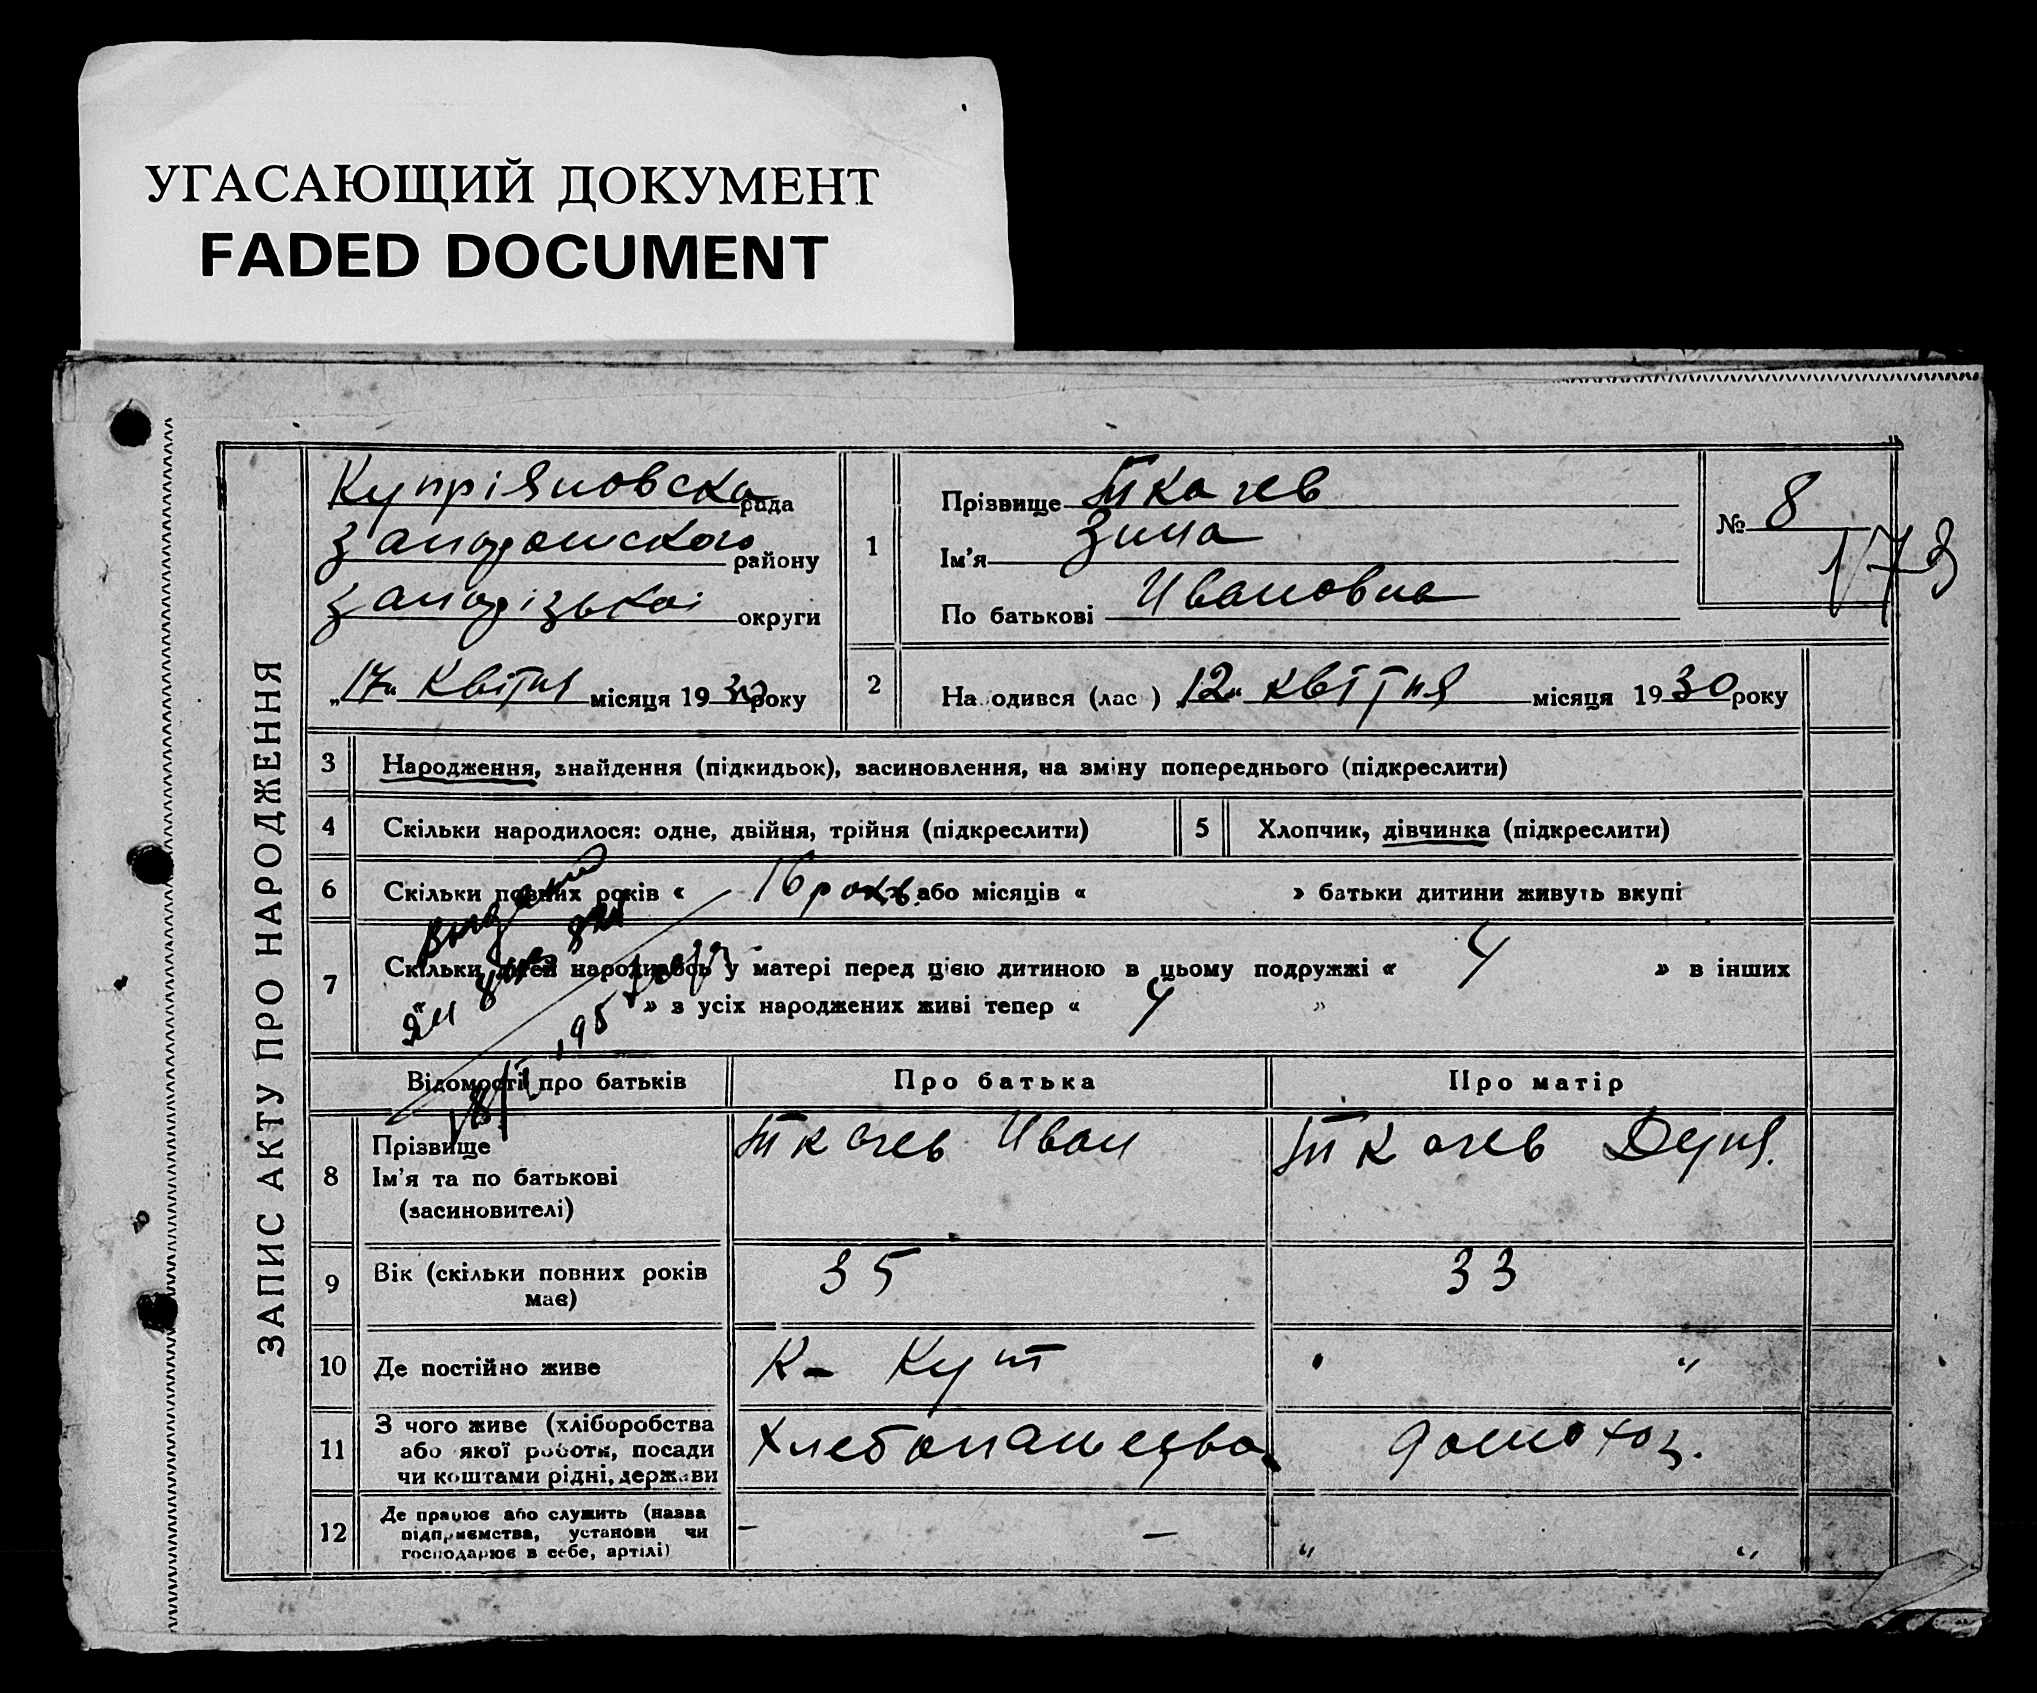 УГАСАЮЩИЙ ДОКУМЕНТ
FADED DOCUMENT
ЗАПИС АКТУ ПРО НАРОДЖЕННЯ
Купріяновска рада
району
округи
„17“ Квітня місяця 1930 року
1
Прізвище Ткачев
Ім'я Зина
По батькові Ивановна
№ 8
173
2
На одився (лас ) „12“ квітня місяця 1930 року
3 Народження, знайдення (підкидьок), засиновлення, на зміну попереднього (підкреслити)
4 Скільки народилося: одне, двійня, трійня (підкреслити)
5 Хлопчик, дівчинка (підкреслити)
6 Скільки повних років « 16 рокив. або місяців « » батьки дитини живуть вкупі
7 Скільки дітей народилось у матері перед цією дитиною в цьому подружжі « 4 » в інших
» з усіх народжених живі тепер « 4 »
Відомості про батьків
Про батька
Про матір
8 Прізвище
Ім'я та по батькові
(засиновителі)
Ткачев Иван
Ткачев Дуня.
9 Вік (скільки повних років
має)
35
33
10 Де постійно живе
К- Кут
" "
11 З чого живе (хліборобства
або якої роботи, посади
чи коштами рідні, держави
Хлебопашецва
домохоз.
12 Де працює або служить (назва
підприємства, установи чи
господарює в себе, артілі)
- -
" "